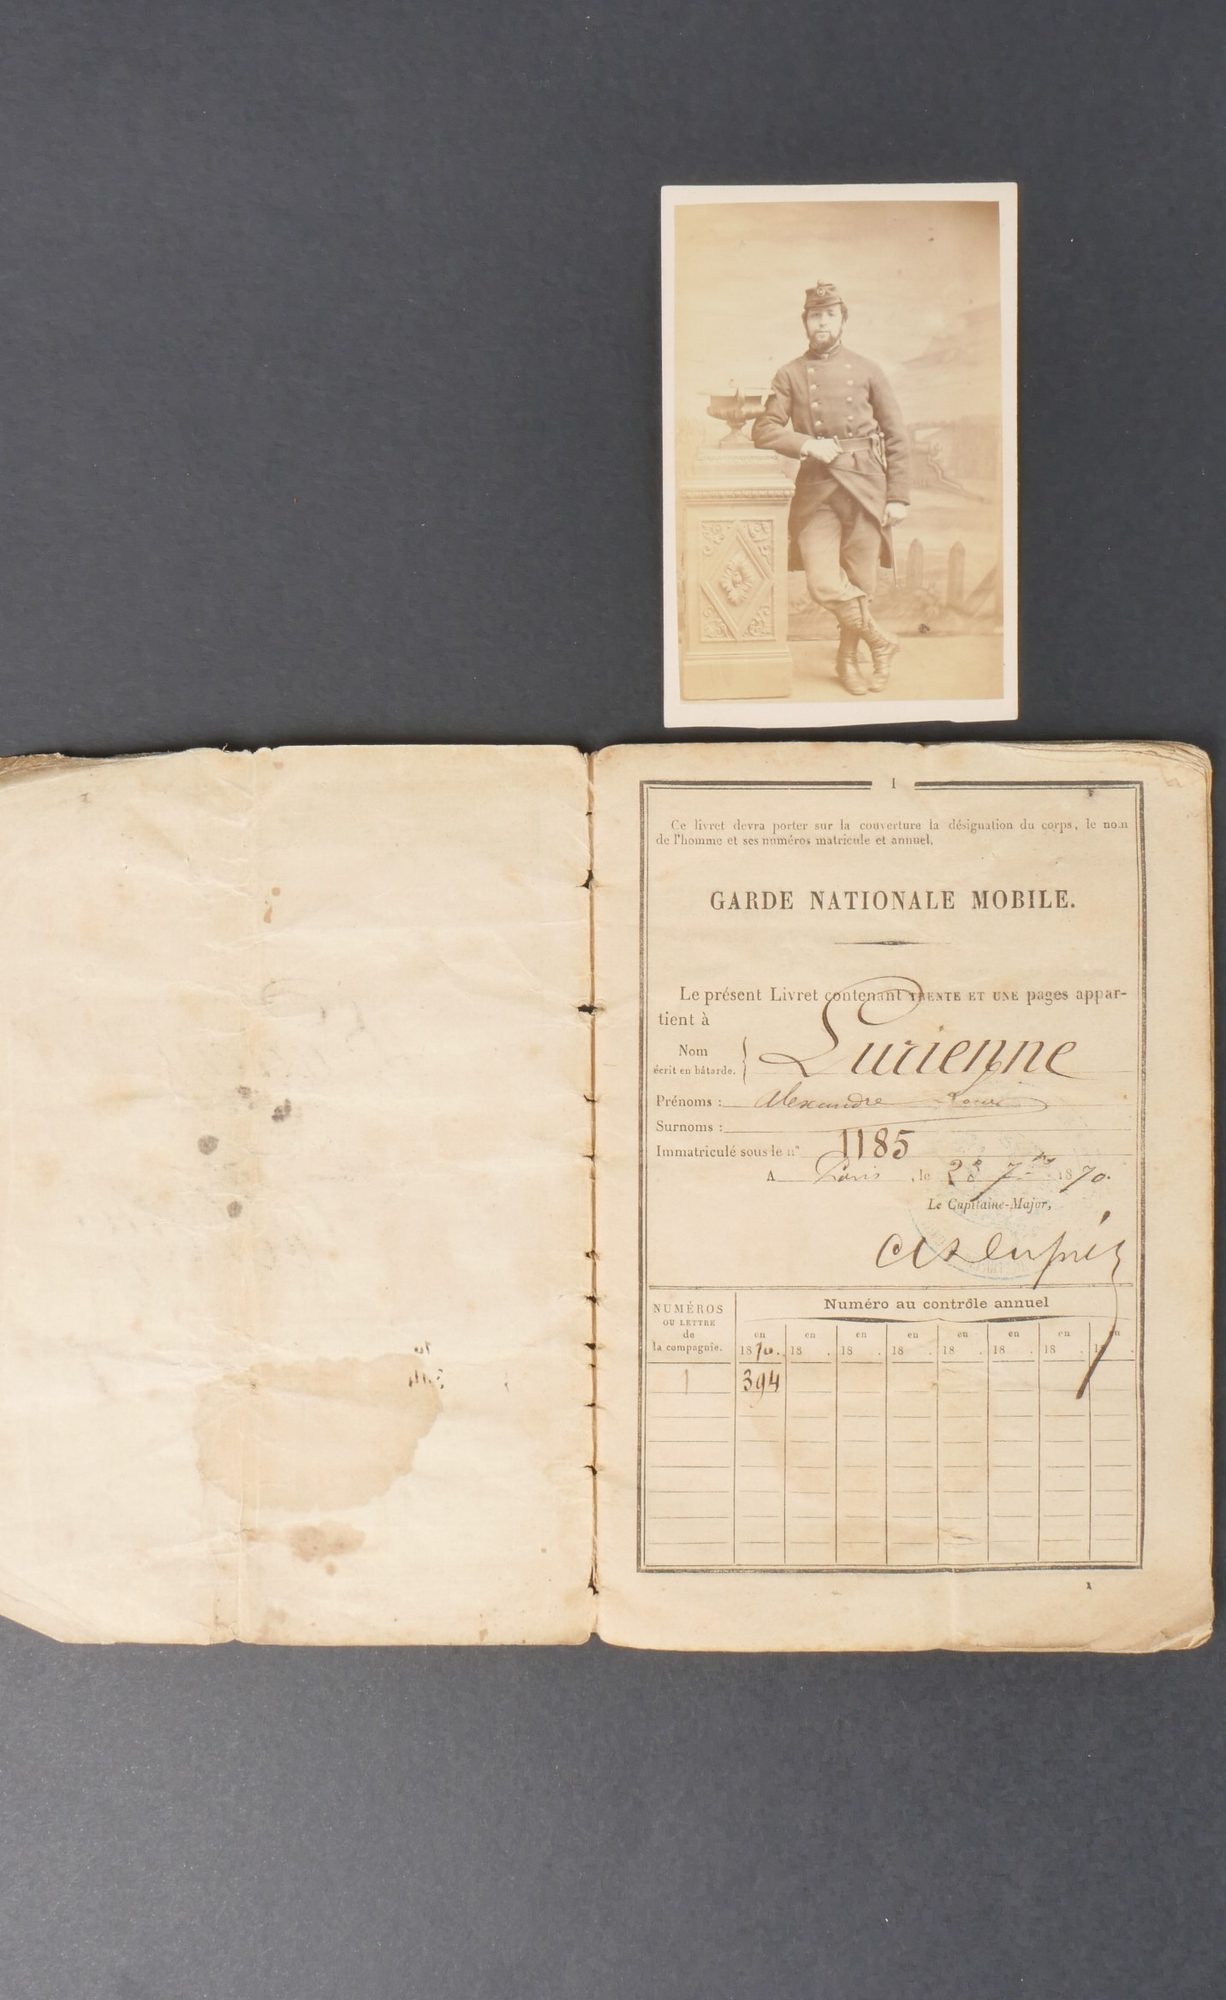 1
Ce livret devra porter sur la couverture la désignation du corps, le nom
de l'homme et ses numéros matricule et annuel.
GARDE NATIONALE MOBILE.
Le présent Livret contenant TRENTE ET UNE pages appar-
tient à
Nom
écrit en bâtarde.
Lurienne
Prénoms : Alexandre Louis
Surnoms :
Immatriculé sous le n° 1185
A Paris, le 28 7bre 1870.
Le Capitaine-Major,
NUMÉROS
OU LETTRE
de
la compagnie.
Numéro au contrôle annuel
en en en en en en en en
1870. 18 . 18 . 18 . 18 . 18 . 18 . 18 .
1 394
1